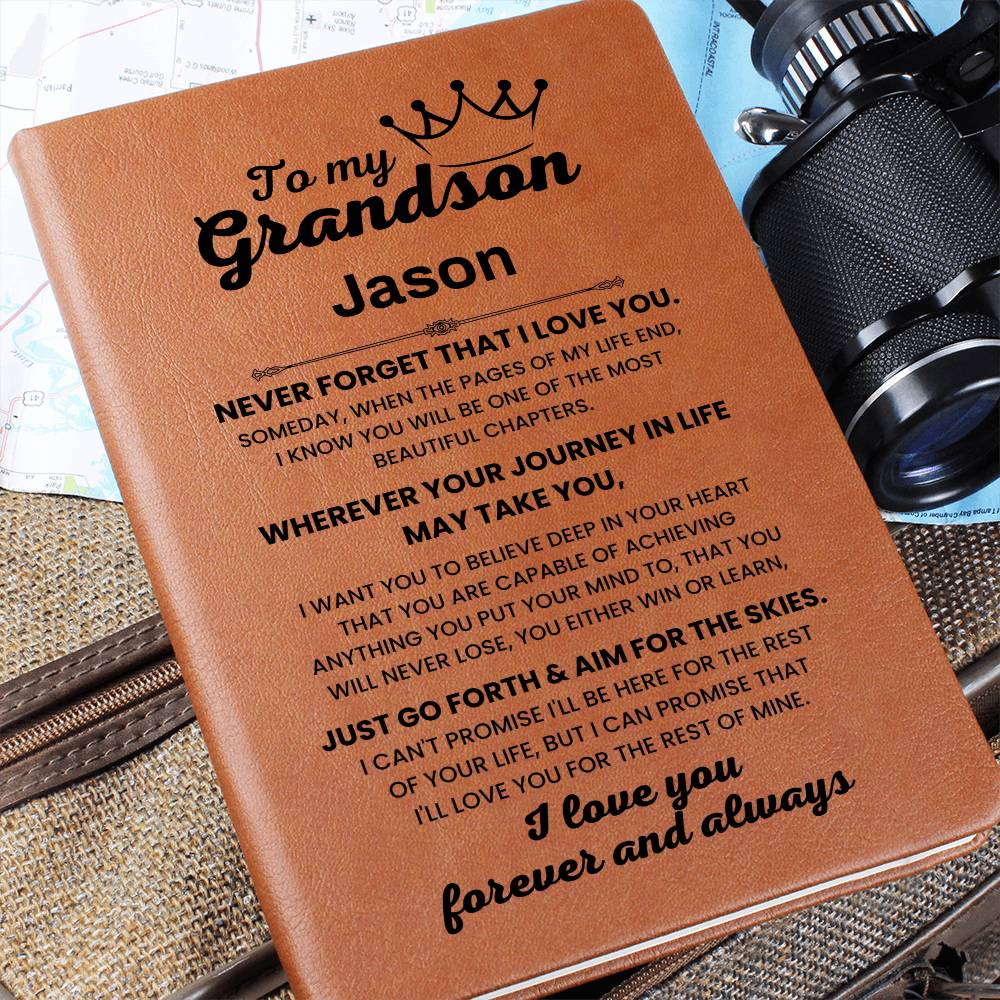 To my
Grandson
Jason
NEVER FORGET THAT I LOVE YOU.
SOMEDAY, WHEN THE PAGES OF MY LIFE END,
I KNOW YOU WILL BE ONE OF THE MOST
BEAUTIFUL CHAPTERS.
WHEREVER YOUR JOURNEY IN LIFE
MAY TAKE YOU,
I WANT YOU TO BELIEVE DEEP IN YOUR HEART
THAT YOU ARE CAPABLE OF ACHIEVING
ANYTHING YOU PUT YOUR MIND TO, THAT YOU
WILL NEVER LOSE, YOU EITHER WIN OR LEARN,
JUST GO FORTH & AIM FOR THE SKIES.
I CAN'T PROMISE I'LL BE HERE FOR THE REST
OF YOUR LIFE, BUT I CAN PROMISE THAT
I'LL LOVE YOU FOR THE REST OF MINE.
I love you
forever and always
Parrish
Buffalo Creek
Golf Course
Woodlands G C
Airport
Ranch
Dixie Sky
41
INTRACOASTAL
Tampa Bay Chamber of